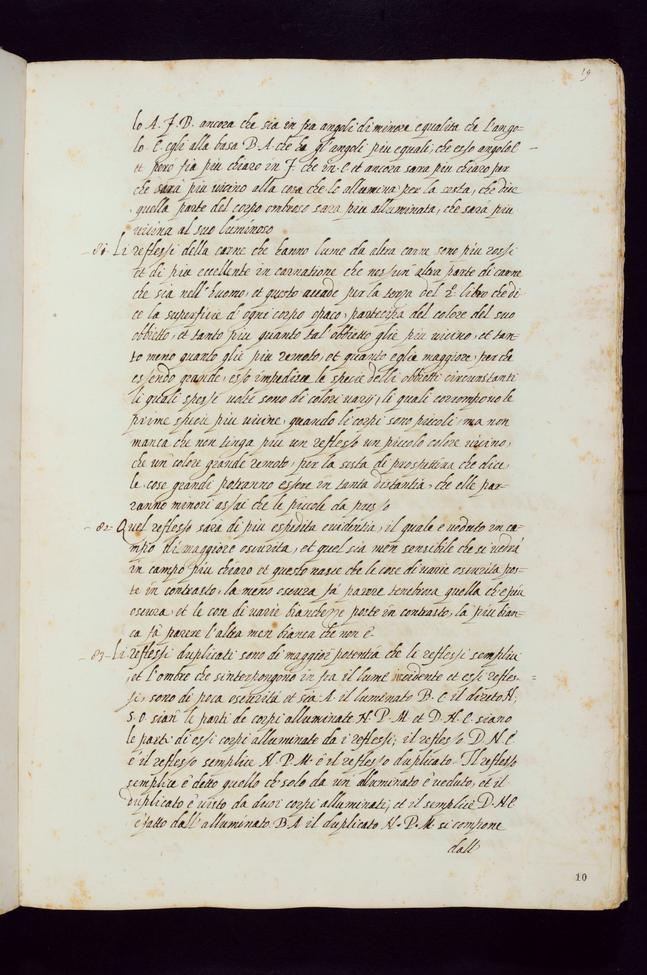 19
lo A. F. B. ancora che sia in fra angoli di minore equalita che l'ango=
lo C. egli alla basa D. A. che ha gl'angoli piu equali che esso angolo C
et però fia piu chiaro in F. che in C. et ancora sara piu chiaro per
che sarà piu vicino alla cosa che lo allumina per la sesta, che dice
quella parte del corpo ombroso sara piu alluminata, che sarà piu
vicina al suo luminoso
81. Li reflessi della carne che hanno lume da altra carne sono piu rossi
et di piu eccellente in carnatione che nessun'altra parte di carne
che sia nell'huomo, et questo accade per la terza del 2º libro che di=
ce la superficie d'ogni corpo opaco, partecipa del colore del suo
obbietto, et tanto piu quanto tal'obbietto gliè piu vicino, et tan=
to meno quanto gliè piu remoto, et quanto eglè maggiore, perche
essendo grande, esso impedisce le specie delli obbietti circunstanti
li quali spesse volte sono di colori varij, li quali corrompono le
prime specie piu vicine, quando li corpi sono piccoli, ma non
manca che non tinga piu un reflesso un piccolo colore vicino,
che un colore grande remoto, per la sesta di prospettiva che dice,
le cose grande potranno essere in tanta distantia, che elle par=
ranno minori assai che le piccole da presso
82. Quel reflesso sarà di piu espedita evidentia, il quale è veduto in ca=
mpo di maggiore oscurita, et quel sia men sensibile che si vedrà
in campo piu chiaro et questo nasce che le cose di varie oscurita pos=
te in contrasto, la meno oscura fà parere tenebrosa quella ch'è più
oscura, et le cose di varie bianchezze poste in contrasto, la piu bian=
ca fà parere l'altra men bianca che non è
83. Li reflessi duplicati sono di maggior potentia che li reflessi semplici
et l'ombre che s'interpongono in fra il lume incidente et essi refles=
si, sono di poca oscurità et sia A. il luminato B. C. il diretto N.
S. O. sian le parti de corpi alluminate N. P. M. et D. N. E. siano
le parti di essi corpi alluminate da i reflessi; il reflesso D. N. E.
è il reflesso semplice N. P. M. è il reflesso duplicato. Il reflesso
semplice è detto quello che solo da un'alluminato è veduto, et il
duplicato è visto da duoi corpi alluminati; et il semplice D. N. E.
è fatto dall'alluminato B. A. il duplicato N. P. M. si compone
dall
10